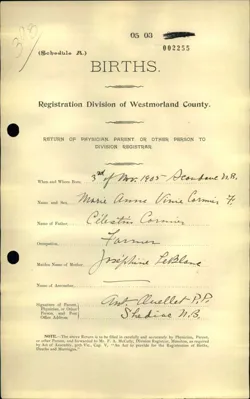 05 03
002255
(Schedule A.)
BIRTHS.
Registration Division of Westmorland County.
RETURN OF PHYSICIAN PARENT OR OTHER PERSON TO
DIVISION REGISTRAR.
When and Where Born, 3rd of Nov. 1905 N.B.
Name and Sex, Marie Anne Cormier F
Name of Father, Célestin Cormier
Occupation, Farmer
Maiden Name of Mother, Joséphine LeBlanc
Name of Accoucheur,
Signature of Parent, Physician, or Other Person, and Post Office Address, Ant. Ouellet P.P.
Shediac N.B.
NOTE.—The above Return is to be filled in carefully and accurately by Physician, Parent,
or other Person, and forwarded to Mr. Division Registrar, Moncton, as required
by Act of Assembly, Cap. V. "An Act to provide for the Registration of Births,
Deaths and Marriages."